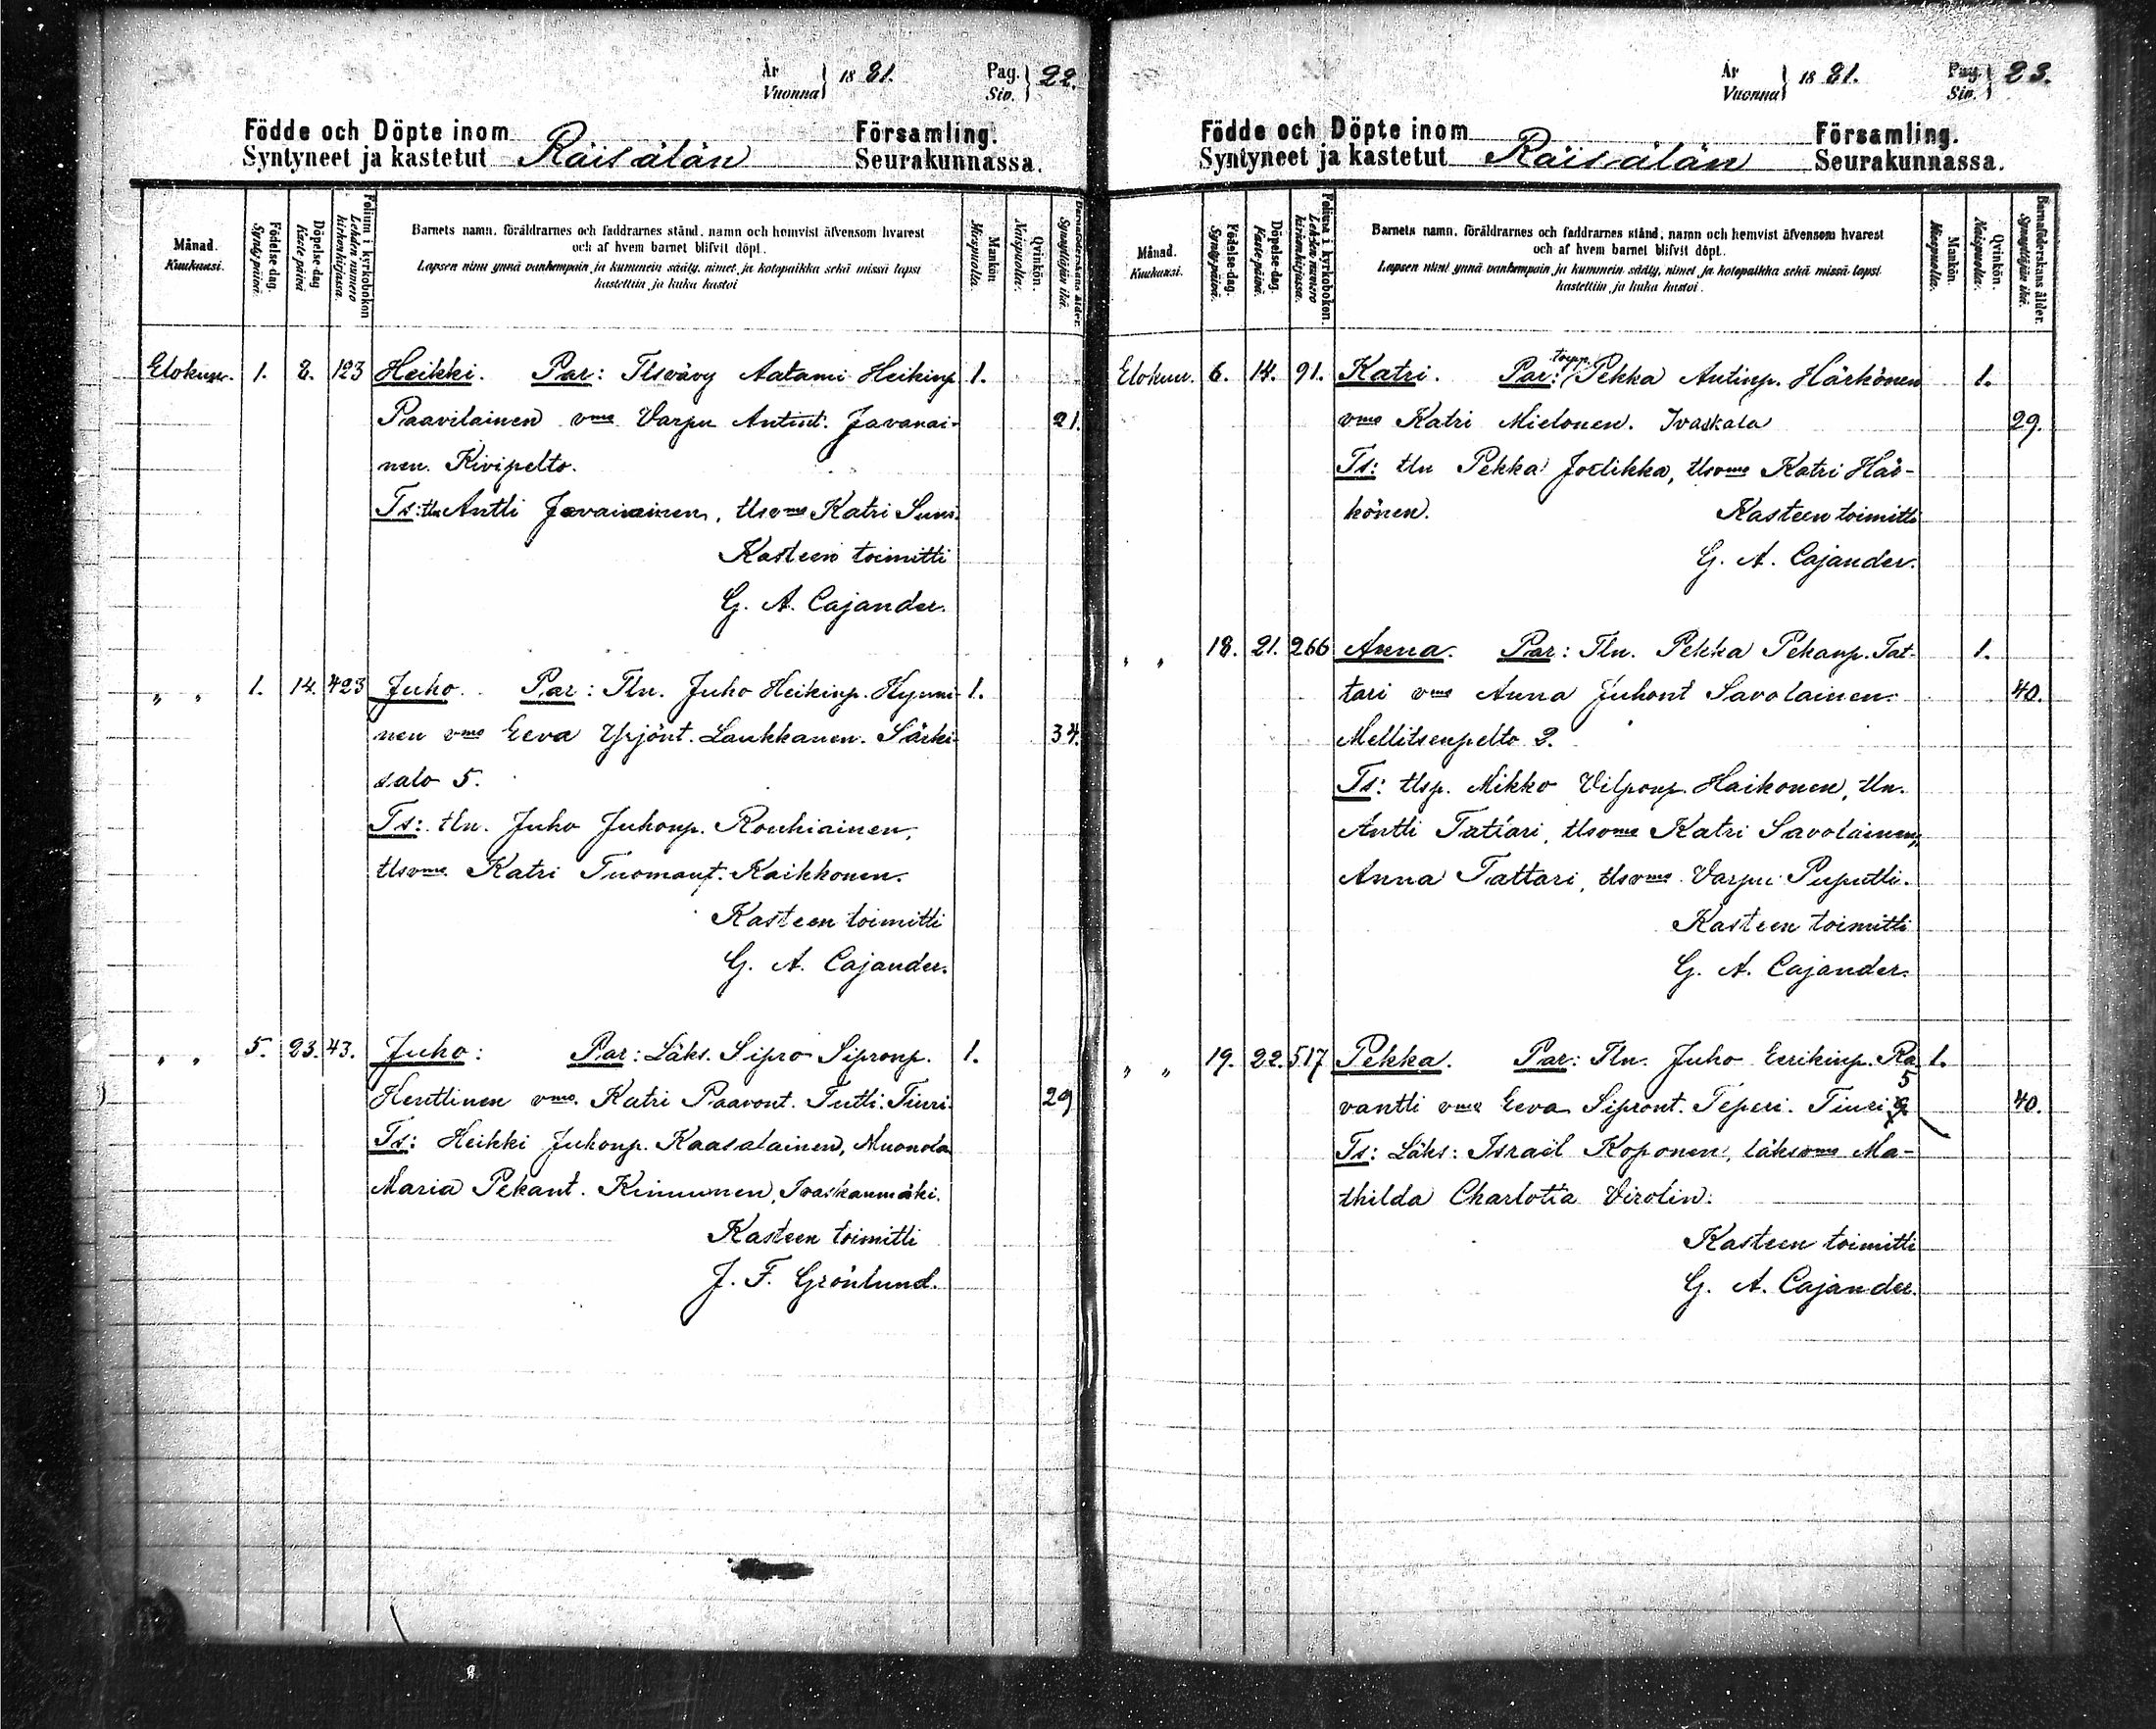 År
Vuonna } 18 81.
Pag.
Siv. } 22.
Födde och Döpte inom Församling.
Syntyneet ja kastetut Räisälän Seurakunnassa.
Månad.
Kuukausi.
Födelse-dag.
Syntypäivä.
Döpelse-dag
Kaste-päivä
Folium i kyrkoboken
Lehden numero
kirkonkirjassa.
Barnets namn, föräldrarnes och faddrarnes stånd, namn och hemvist äfvensom hvarest
och af hvem barnet blifvit döpt.
Lapsen nimi ynnä vanhempain ja kummein sääty, nimet ja kotopaikka sekä missä lapsi
kastettiin ja kuka kastoi
Mankön
Miespuolia.
Qvinkön.
Naispuolia.
Barnaföderskans ålder.
Synnyttäjän ikä.
Elokuu. 1. 2. 123 Heikki. Par: Tlsvävy Aatami Heikinp 1.
Paavilainen vmo Varpu Antint. Javanai- 21.
nen. Kivipelto.
Ts: tln Antti Javanainen, tlsvmo Katri Suni.
Kasteen toimitti
G. A. Cajander.
" " 1. 14. 423 Juho. Par: Tln. Juho Heikinp. Hynni- 1.
nen vmo Eeva Yrjönt. Laukkanen. Särki- 34.
salo 5.
Ts: tln. Juho Juhonp. Rouhiainen,
tlsvmo Katri Tuomant. Kaikkonen.
Kasteen toimitti
G. A. Cajander.
" " 5. 23. 43. Juho: Par: Läks. Sipro Sipronp. 1.
Henttinen vmo. Katri Paavont. Tutti. Tiuri. 29
Ts: Heikki Juhonp. Kaasalainen, Muonola
Maria Pekant. Kinnunen, Ivaskanmäki.
Kasteen toimitti
J. F. Grönlund.
År
Vuonna } 18 81.
Pag.
Siv. } 23.
Födde och Döpte inom Församling.
Syntyneet ja kastetut Räisälän Seurakunnassa.
Månad.
Kuukausi.
Födelse-dag.
Syntypäivä.
Döpelse-dag.
Kaste-päivä.
Folium i kyrkoboken.
Lehden numero
kirkonkirjassa.
Barnets namn, föräldrarnes och faddrarnes stånd, namn och hemvist äfvensom hvarest
och af hvem barnet blifvit döpt.
Lapsen nimi ynnä vanhempain ja kummein sääty, nimet ja kotopaikka sekä missä lapsi
kastettiin ja kuka kastoi.
Mankön.
Miespuolia.
Qvinkön.
Naispuolia.
Barnaföderskans ålder.
Synnyttäjän ikä.
Elokuu. 6. 14. 91. Katri. Par: torpp. Pekka Antinp. Härkönen 1.
vmo Katri Mielonen. Ivaskala 29.
Ts: tln Pekka Jortikka, tlsvmo Katri Här-
könen. Kasteen toimitti
G. A. Cajander.
" " 18. 21. 266 Anna. Par: Tln. Pekka Pekanp. Tat- 1.
tari vmo Anna Juhont Savolainen. 40.
Mellitsenpelto 2.
Ts: tlsp. Mikko Vilponp. Haikonen, tln.
Antti Tattari, tlsvmo Katri Savolainen,
Anna Tattari, tlsvmo Varpu Puputti.
Kasteen toimitti
G. A. Cajander.
" " 19. 22. 517 Pekka. Par: Tln. Juho Eerikinp. Ra 1.
vantti vmo Eeva Sipront. Teperi. Tiuri 5 40.
Ts: Läks: Israël Koponen, läksvmo Ma-
thilda Charlotta Virolin.
Kasteen toimitti
G. A. Cajander.